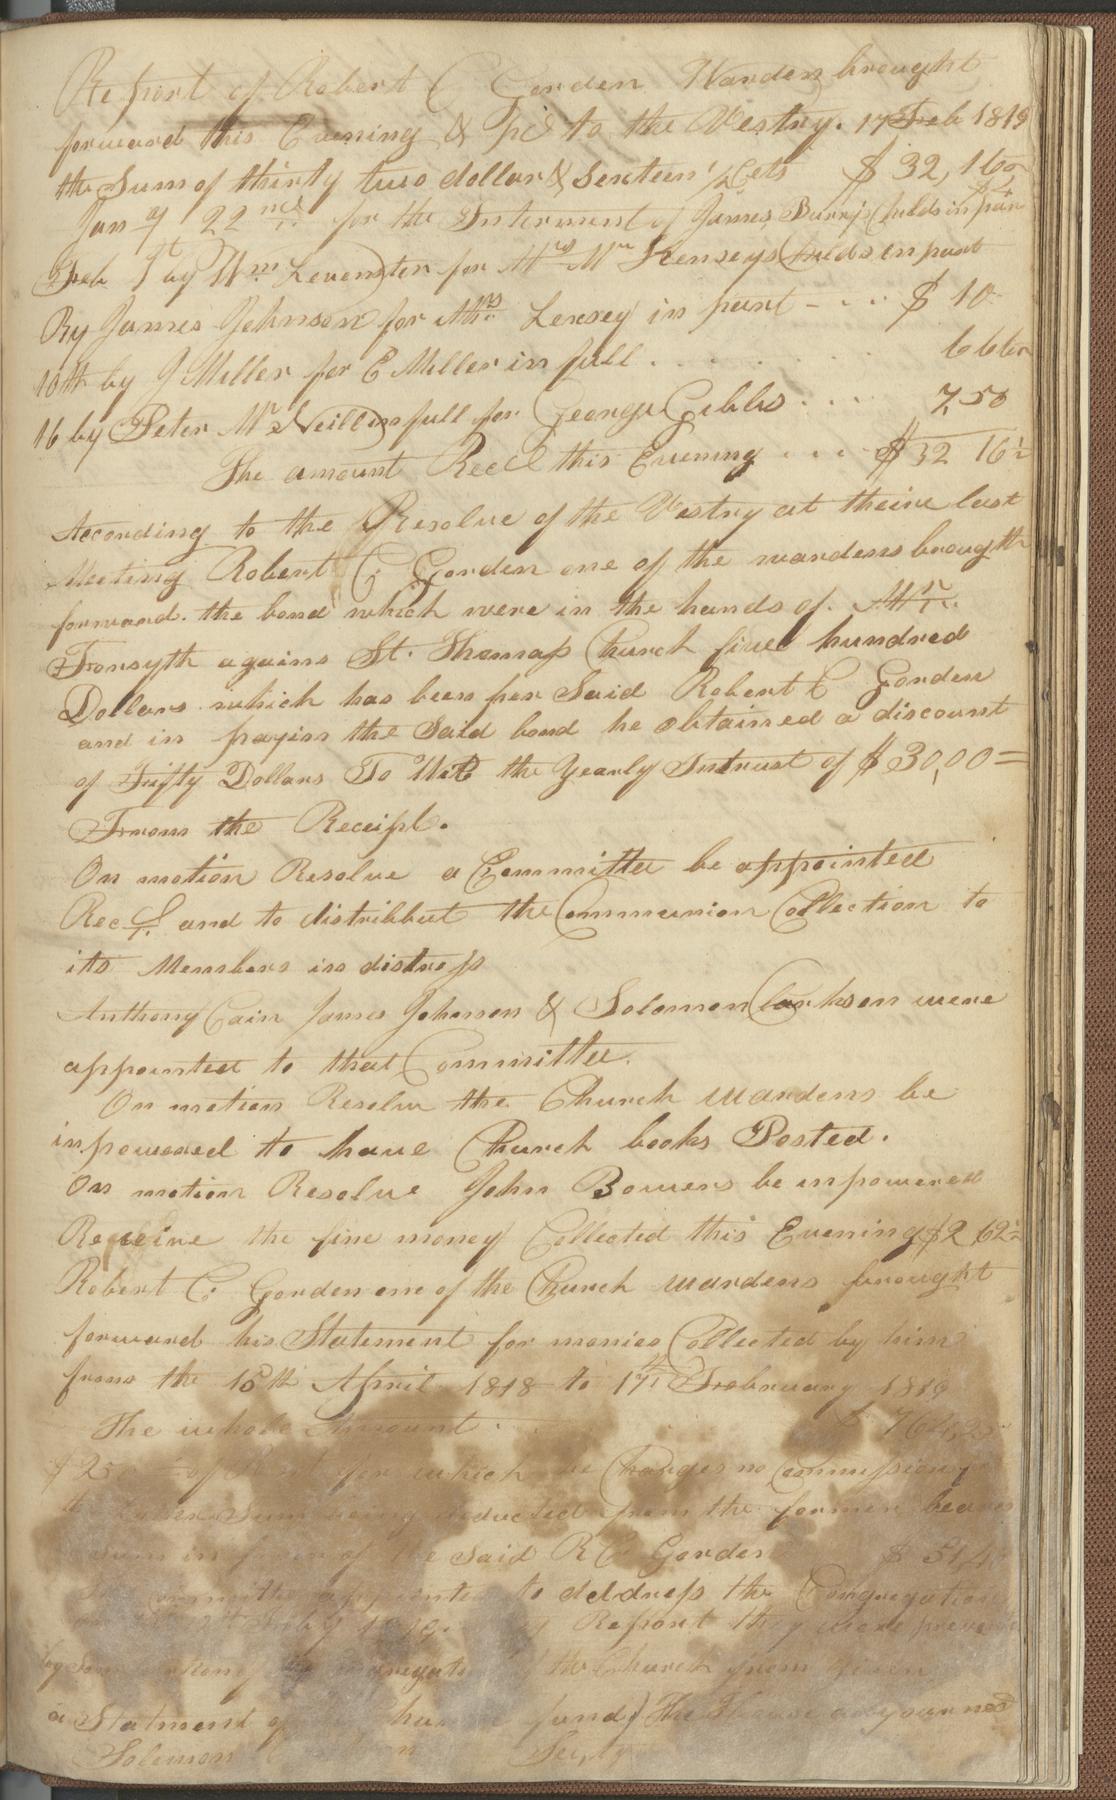 Report of Robert C Gorden Warden brought
forward this Evening & pd to the Vestry. 17 Feb 1819
the Sum of thirty two dollar & Sexteen 1/2 Cets $ 32,16
Jany 22nd for the Interment of James Burrjs Childs in part
Feb by Wm Levenston for Mrs Mc Kenseys Childs in part
By James Johnson for Mrs Lersey in part - . . . $ 10
10th by J Miller for E Miller in full . . . . . . .
16 by Peter Mc Neill in full for George Gibbs . . . . 7 50
The amount Recd this Evening . . . . $ 32 16 1/2
According to the Resolve of the Vestry at theire last
Meeting Robert C. Gorden one of the wardens brougth
forward. the bond which were in the hands of. Mr.
Forsyth agains St. Thomas Church five hundred
Dollars which has been per Said Robert C Gorden
and in payin the Said bond he obtained a discount
of Fifty Dollars To Wit the Yearly Intrust of $ 30,00 =
From the Receipt.
On motion Resolve a Committee be appointed
Recd and to distribbut the Communion Collection to
its Members in distress
Anthony Cain James Johnson & Solomon Clarkson were
appointed to that Committee.
On motion Resolve the Church Wardens be
inpowered to have Church books Posted.
On motion Resolve John Bowers be inpowered
Receive the fine money Collected this Evening $2 62 1/2
Robert C. Gorden one of the Church wardens brought
forward his Statement for monies Collected by him
from the 15th April 1818 to 17th February 1819
The whole Amount . . . $ 764,25
$ 250 of for which he Charges no Commission
Sum being deducted from the former beaves
Sum in faver of the Said R C Gorden $ 51,4
Committe appointed to address the Congregation
Report they were prevent
by Some of the Church from given
a Statment of fund) The House adjourned
Solomon Secty